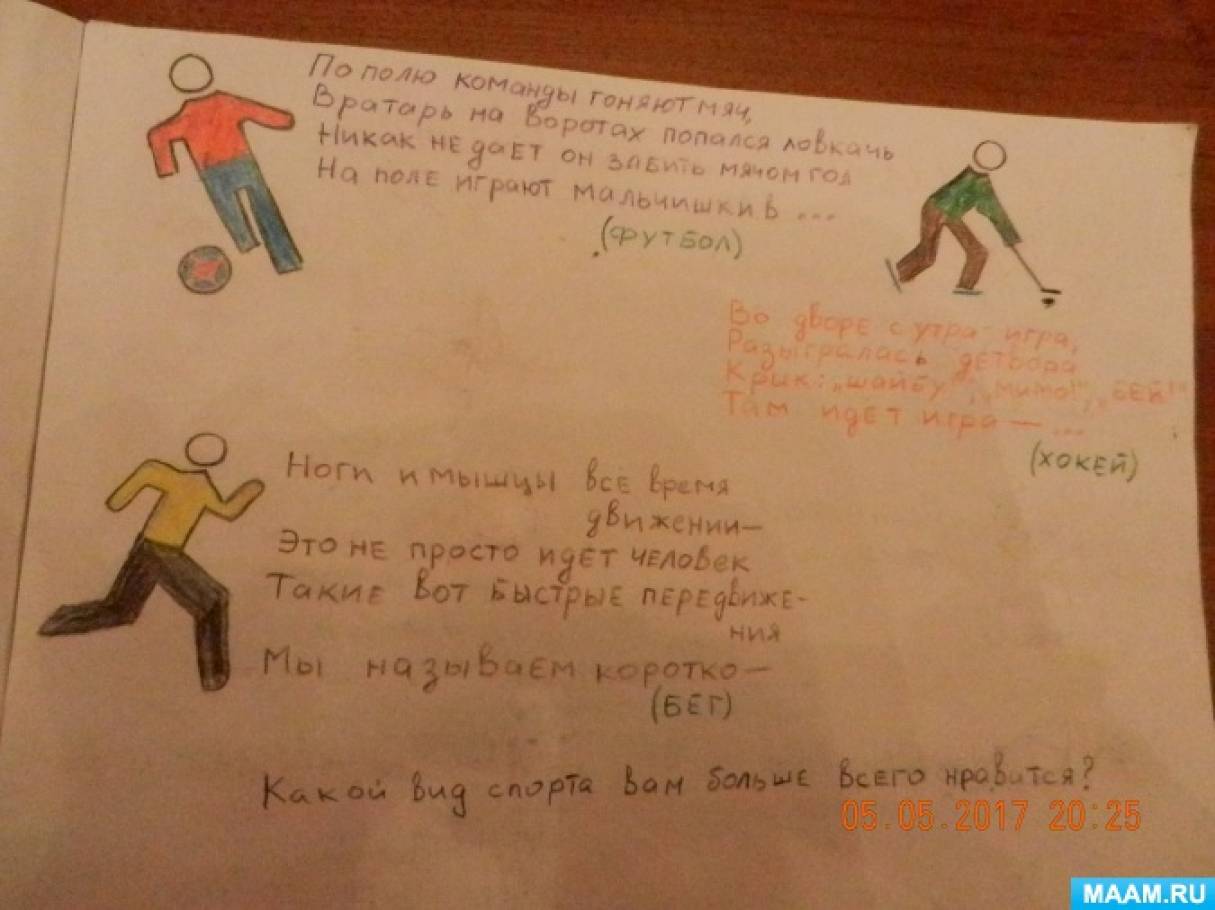 По полю команды гоняют мяч,
Вратарь на воротах попался ловкачь
Никак не дает он забить мячом гол
На поле играют мальчишки в ...
(футбол)
Во дворе с утра игра,
Разыгралась детвора
Крик: „шайбу!", „мимо!", „бей!"
Там идет игра – ...
(хокей)
Ноги и мышцы все время
движении–
Это не просто идет человек
Такие вот быстрые передвиже-
ния
Мы называем коротко–
(БЕГ)
Какой вид спорта вам больше всего нравится?
05.05.2017 20:25
MAAM.RU